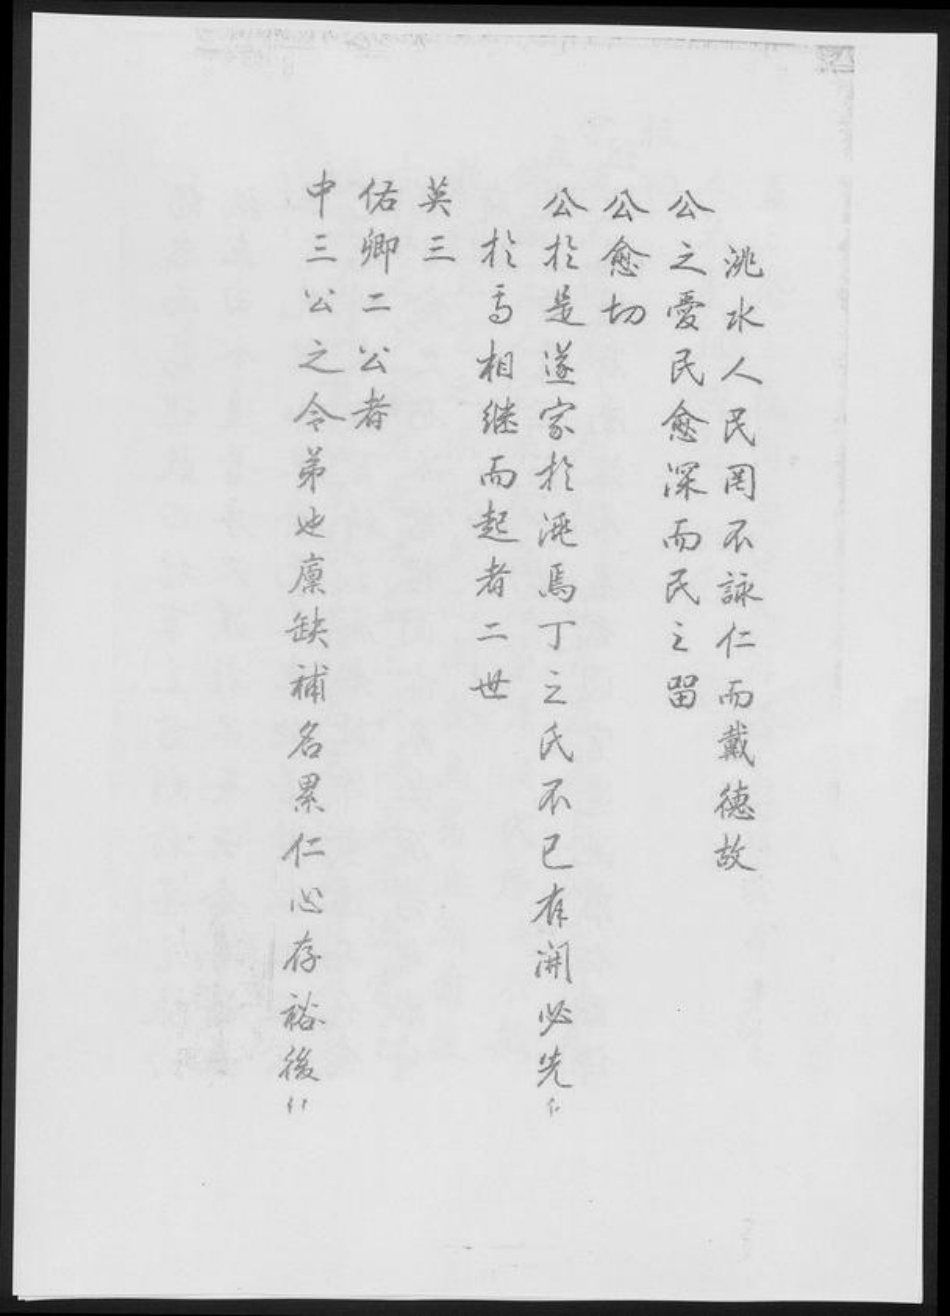 洮水人民罔不詠仁而戴德故
公之愛民愈深而民之留
公愈切
公於是遂家於洮焉丁之氏不已有開必先
於焉相継而起者二世
英三
佑卿二公者
中三公之令弟也廪缺補名累仁心存裕後